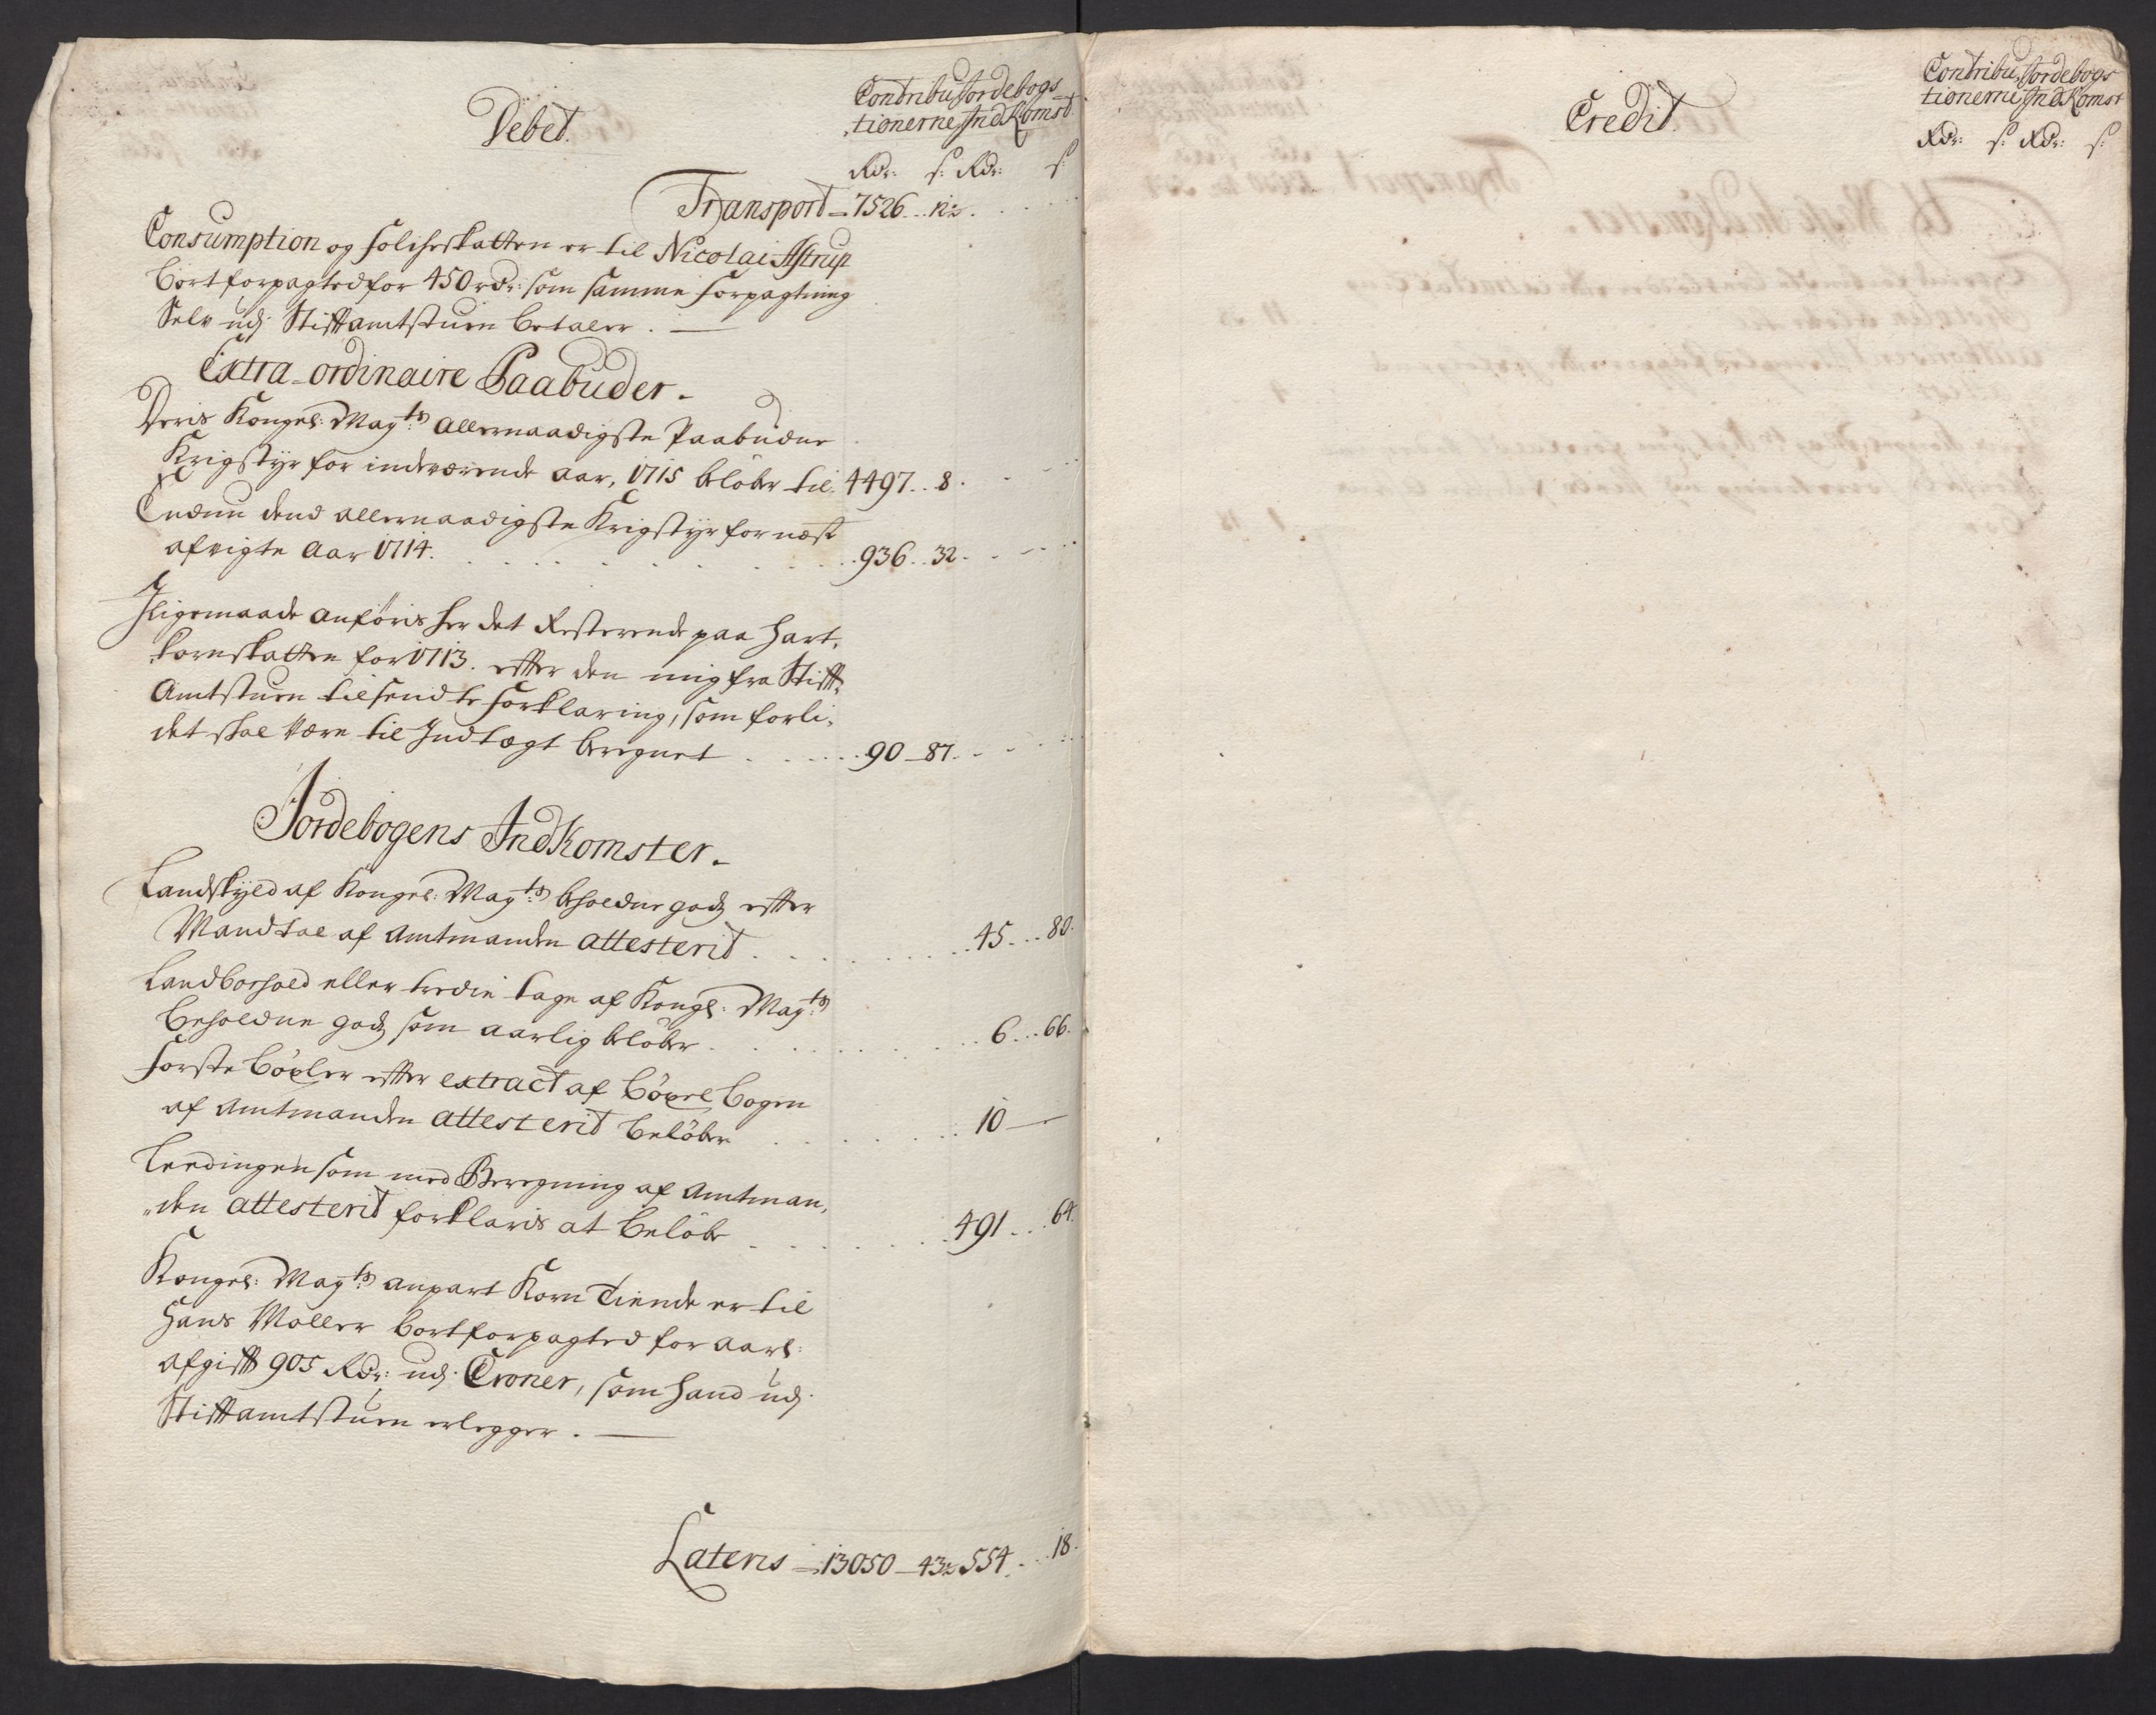 Debet.
Contribu- Jordebogs
tionerne IndKomst
Rdr: s: Rdr: s:
Transport = 7526 .. 12½.
Consumption og folcheskatten er til Nicolai Astrup
bortforpagted for 450 rdr: som samme forpagtning
Selv udj Stiftamtstuen betaler.
Extra-ordinaire Paabuder.
Deris Kongel: Maytz allernaadigste Paabudne
Krigstyr for indeværende aar, 1715 beløber til. 4497 .. 8.
Endnu dend allernaadigste Krigstyr for næst
afvigte Aar 1714. 936 .. 32.
Iligemaade anføris her det Resterende paa Hart,
kornskatten for 1713. effter den mig fra Stifft,
Amtstuen tilsendte forklaring, som forli,
det skal være til Indtægt beregnet 90 - 87.
Jordebogens IndKomster.
Landskyld af Kongel: Maytz beholdne godz effter
Mandtal af Amtmanden attesterit 45 ... 80.
Landborhold eller tredie tage af Kongl: Maytz
beholdne godz som aarlig beløber 6 ... 66.
Forste bøxler effter extract af bøxel bogen
af Amtmanden attesterit beløber 10 —
Leedingen som med Beregning af Amtman,
den attesterit forklaris at beløbe 491 ... 64.
Kongel: Maytz anpart Korn Tiende er til
Hans Møller bortforpagted for aarl:
afgifft 905 Rdr: udj Croner, som hand udj
Stiftamtstuen erlegger.
Lateris = 13050 - 43½ 554 ... 18.
Credit.
Contribu- Jordebogs
tionerne IndKomst
Rdr: s: Rdr: s: